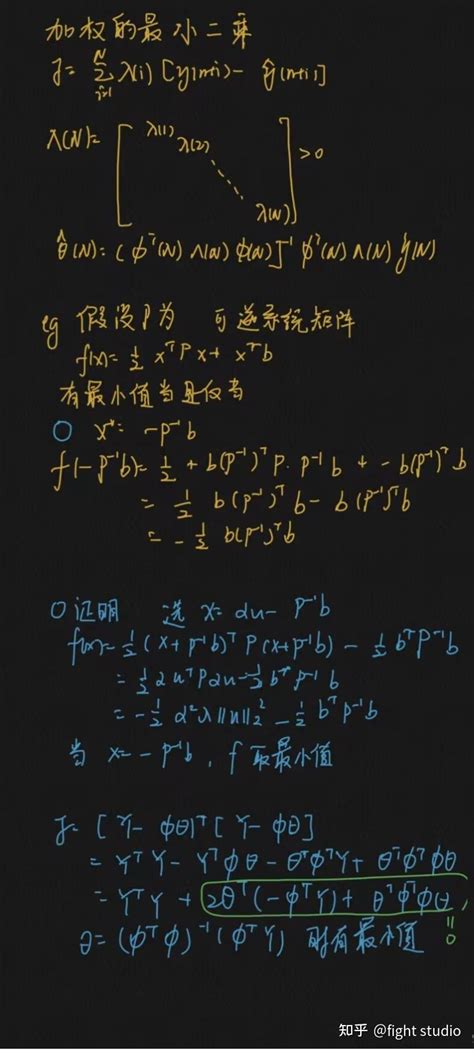 加权的最小二乘
J = Σ_{i=1}^{N} λ(i) [y(n+i) - ŷ(n+i)]
Λ(N) = [ λ(1) λ(2) ⋱ λ(N) ] > 0
θ̂(N) = (φᵀ(N) Λ(N) φ(N)]⁻¹ φᵀ(N) Λ(N) y(N)
eg 假设P为 可逆系统矩阵
f(x) = ½ xᵀPx + xᵀb
有最小值当且仅当
○ x* = -P⁻¹b
f(-P⁻¹b) = ½ + b(P⁻¹)ᵀ P · P⁻¹b + -b(P⁻¹)ᵀb
= ½ b(P⁻¹)ᵀb - b(P⁻¹)ᵀb
= -½ b(P⁻¹)ᵀb
○ 证明 选 x = αu - P⁻¹b
f(x) = ½(x+P⁻¹b)ᵀ P(x+P⁻¹b) - ½ bᵀP⁻¹b
= ½ αuᵀPαu - ½ bᵀP⁻¹b
= -½ α²λ||u||₂² - ½ bᵀP⁻¹b
当 x = -P⁻¹b, f 取最小值
J = [Y - φθ]ᵀ[Y - φθ]
= YᵀY - Yᵀφθ - θᵀφᵀY + θᵀφᵀφθ
= YᵀY + 2θᵀ(-φᵀY) + θᵀφᵀφθ,
θ = (φᵀφ)⁻¹(φᵀY) 时有最小值 = 0
知乎 @fight studio